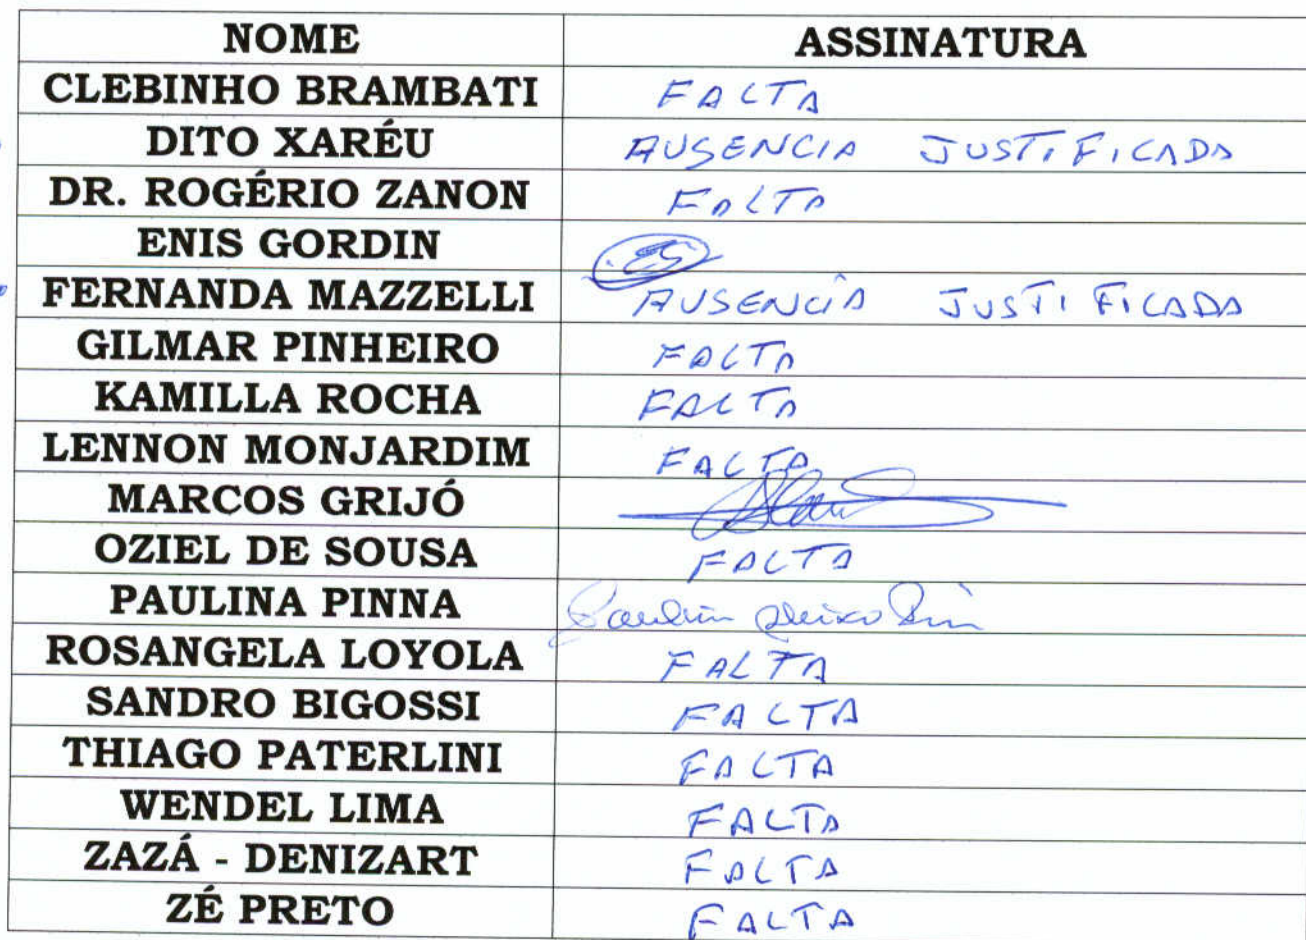 NOME ASSINATURA
CLEBINHO BRAMBATI FALTA
DITO XARÉU AUSENCIA JUSTIFICADA
DR. ROGÉRIO ZANON FALTA
ENIS GORDIN
FERNANDA MAZZELLI AUSENCIA JUSTIFICADA
GILMAR PINHEIRO FALTA
KAMILLA ROCHA FALTA
LENNON MONJARDIM FALTA
MARCOS GRIJÓ
OZIEL DE SOUSA FALTA
PAULINA PINNA
ROSANGELA LOYOLA FALTA
SANDRO BIGOSSI FALTA
THIAGO PATERLINI FALTA
WENDEL LIMA FALTA
ZAZÁ - DENIZART FALTA
ZÉ PRETO FALTA